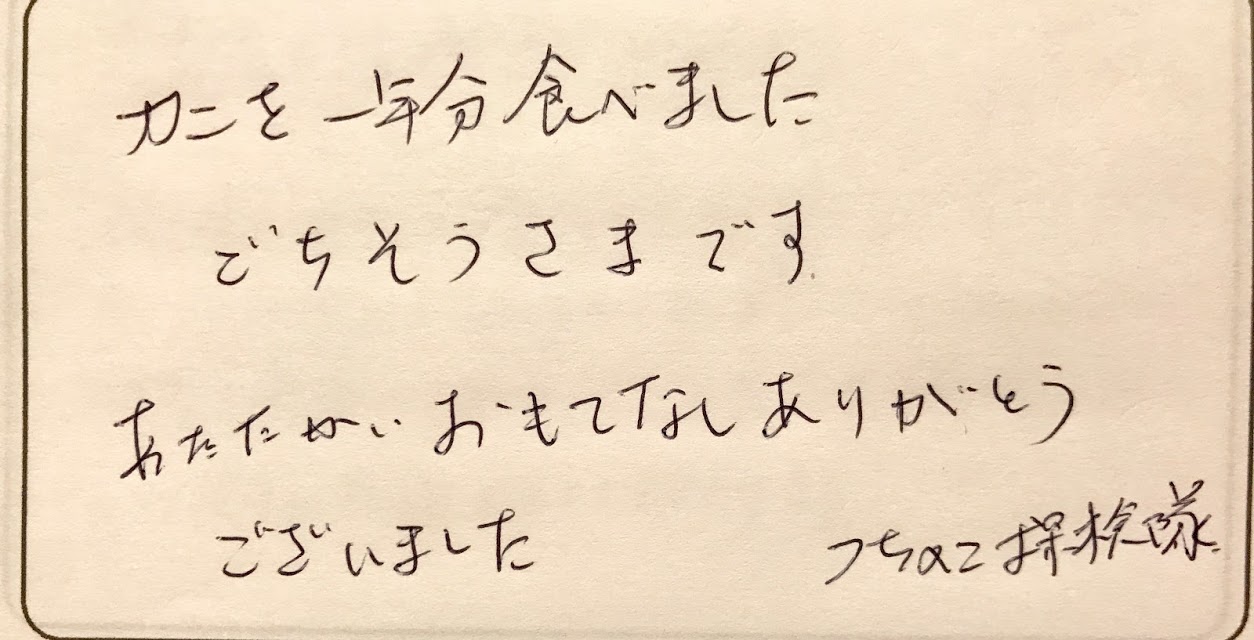 カニを一年分食べました
ごちそうさまです.
あたたかいおもてなしありがとう
ございました
つちのこ探検隊.